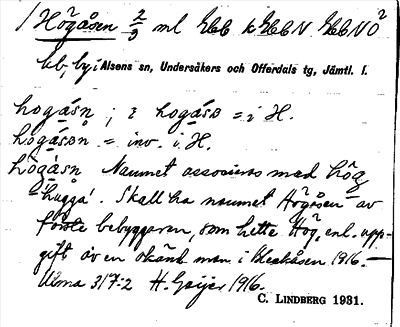 Högåsen 2/3 ml EbB k EbBN EbBNÖ2
bb, by i Alsens sn, Undersåkers och Offerdals tg, Jämtl. l.
hogásn ; i hogásə = i H.
hogásən = inv. i H.
hògàsn Namnet associeras med hög
'hugga'. Skall ha namnet Högåsen av
förste bebyggaren, som hette Hög, enl. upp-
gift av en okänd man i Bleckåsen 1916. —
Ulma 317:2 H. Geijer 1916.
C. LINDBERG 1931.